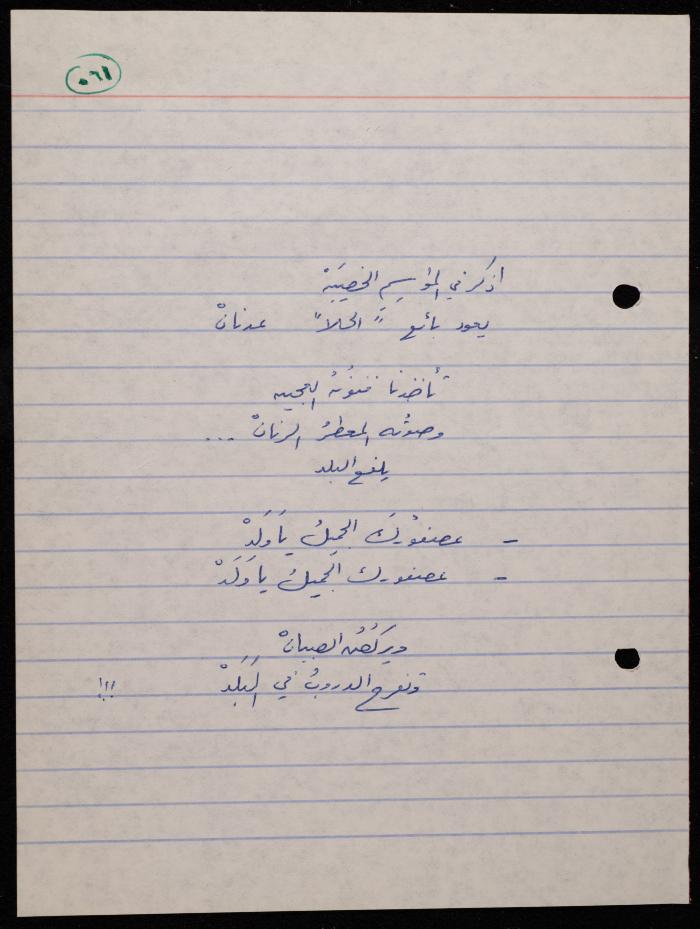 ٥٦١
اذكر في المواسم الخصيبَهْ
يعود بائع " الحلا " عدنانْ
تأخذنا فنونُهُ العجيبه
وصوتُه المعطرُ الرنانْ ...
يلفع البلد
- عصفورُكَ الجميلُ يَا وَلَدْ
- عصفورك الجميلُ يا وَلَدْ
ويركُضُ الصبيانْ
وتفرح الدروبُ في البَلَدْ !!!